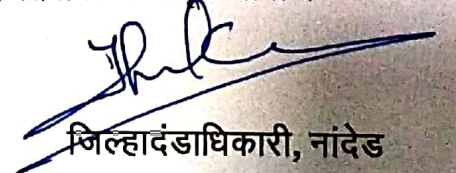 जिल्हादंडाधिकारी, नांदेड